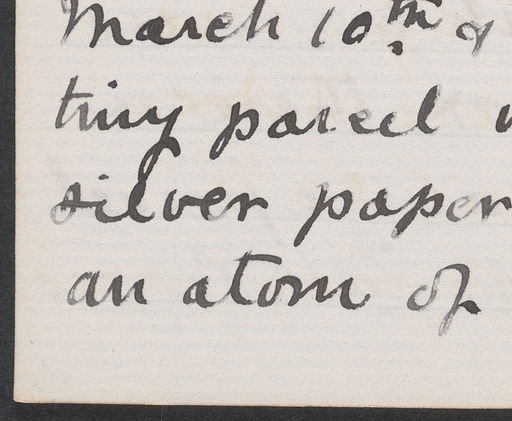 March 10th &
tiny parcel
silver paper
an atom of